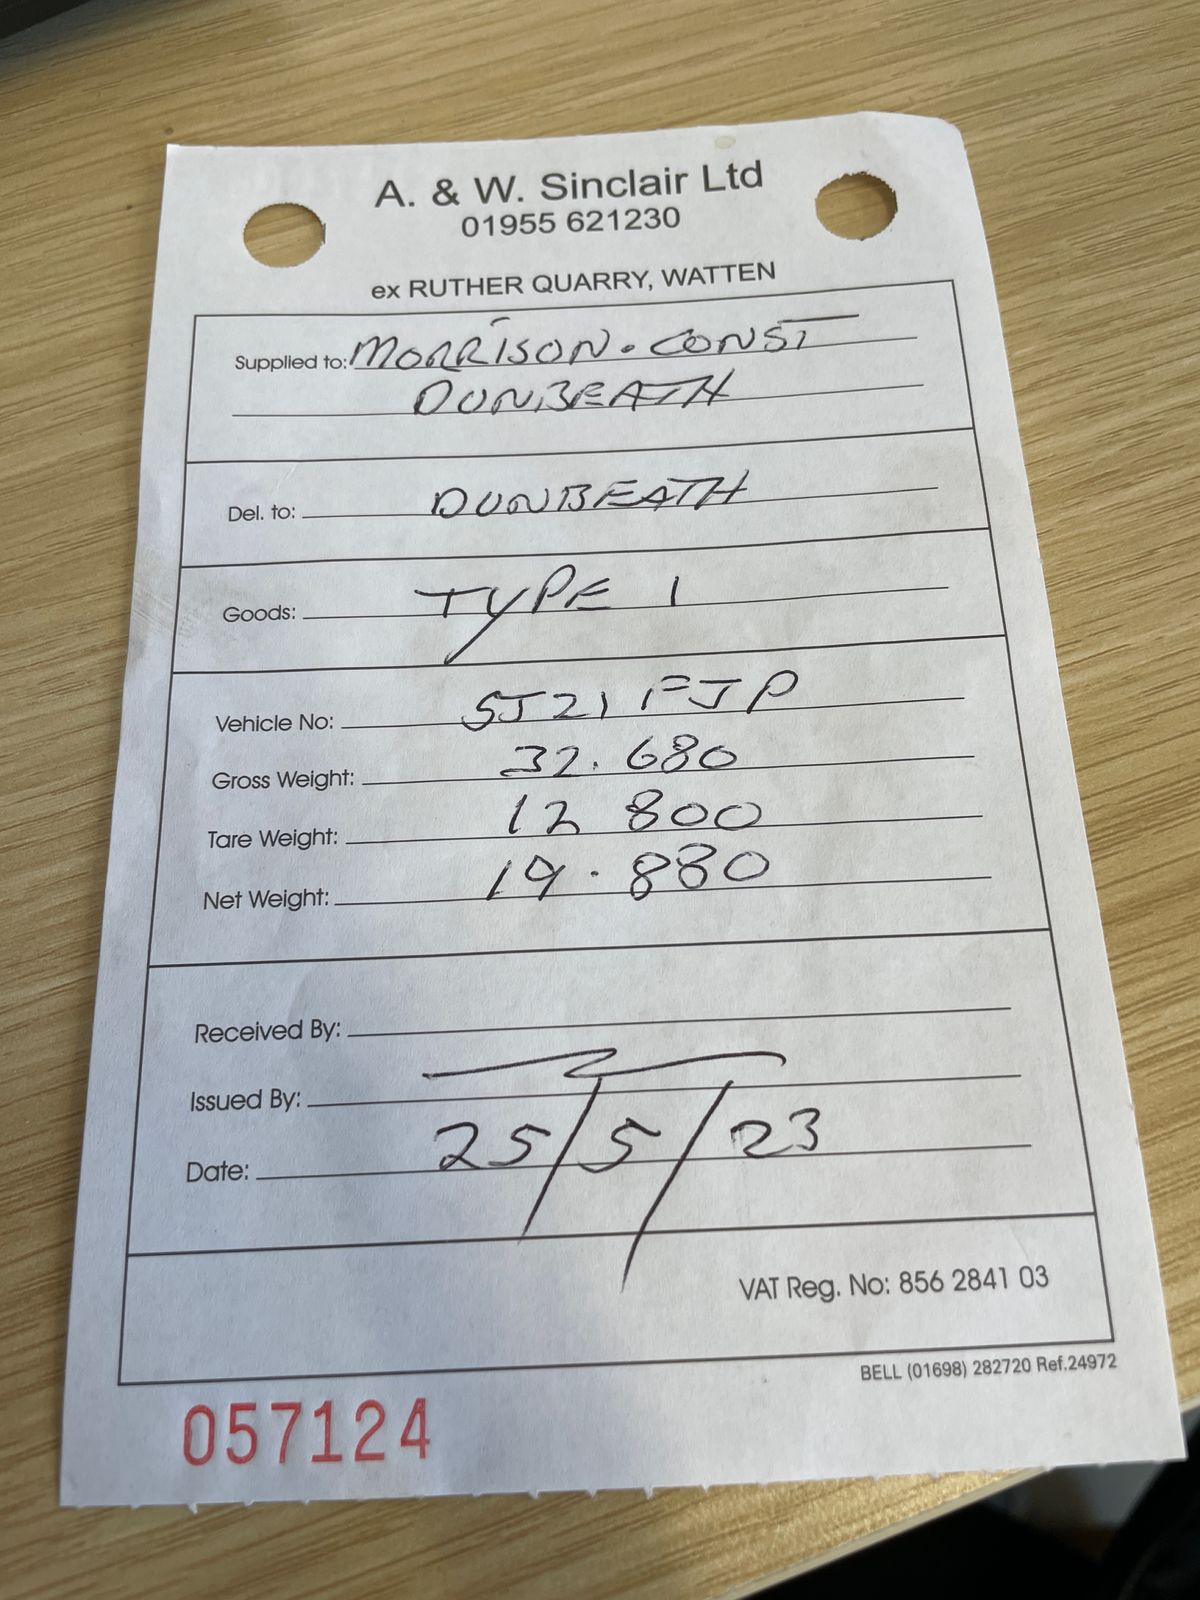 A. & W. Sinclair Ltd
01955 621230
ex RUTHER QUARRY, WATTEN
Supplied to: MORRISON. CONST
DUNBEATH
Del. to: DUNBEATH
Goods: TYPE 1
Vehicle No: SJ21 FJP
Gross Weight: 32.680
Tare Weight: 12 800
Net Weight: 19.880
Received By:
Issued By:
Date: 25/5/23
VAT Reg. No: 856 2841 03
BELL (01698) 282720 Ref.24972
057124